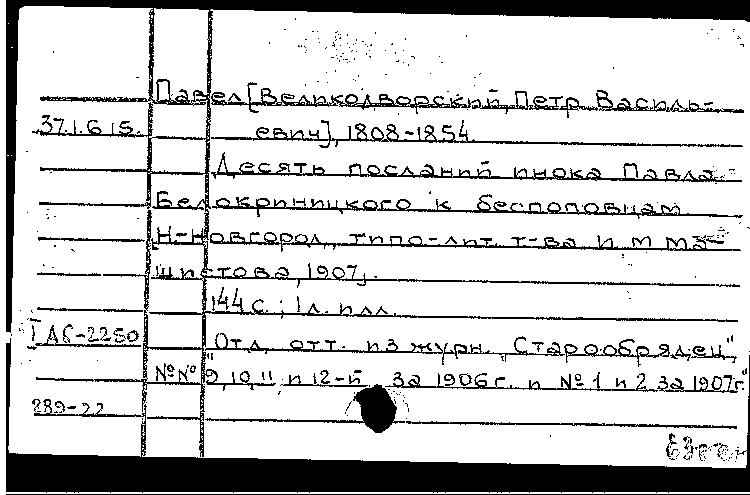 Павел [Великодворский, Петр Василь-
37.1.615. евич], 1808-1854.
Десять посланий инока Павла
Белокриницкого к беспоповцам
Н-Новгород, типо-лит. т-ва И М Ма-
шистова, 1907.
144 с.; 1 л. илл.
I А6-2250 Отд. отт. из журн. "Старообрядец",
№№ 9, 10, 11, и 12-й за 1906 г. и № 1 и 2 за 1907г.
289-22